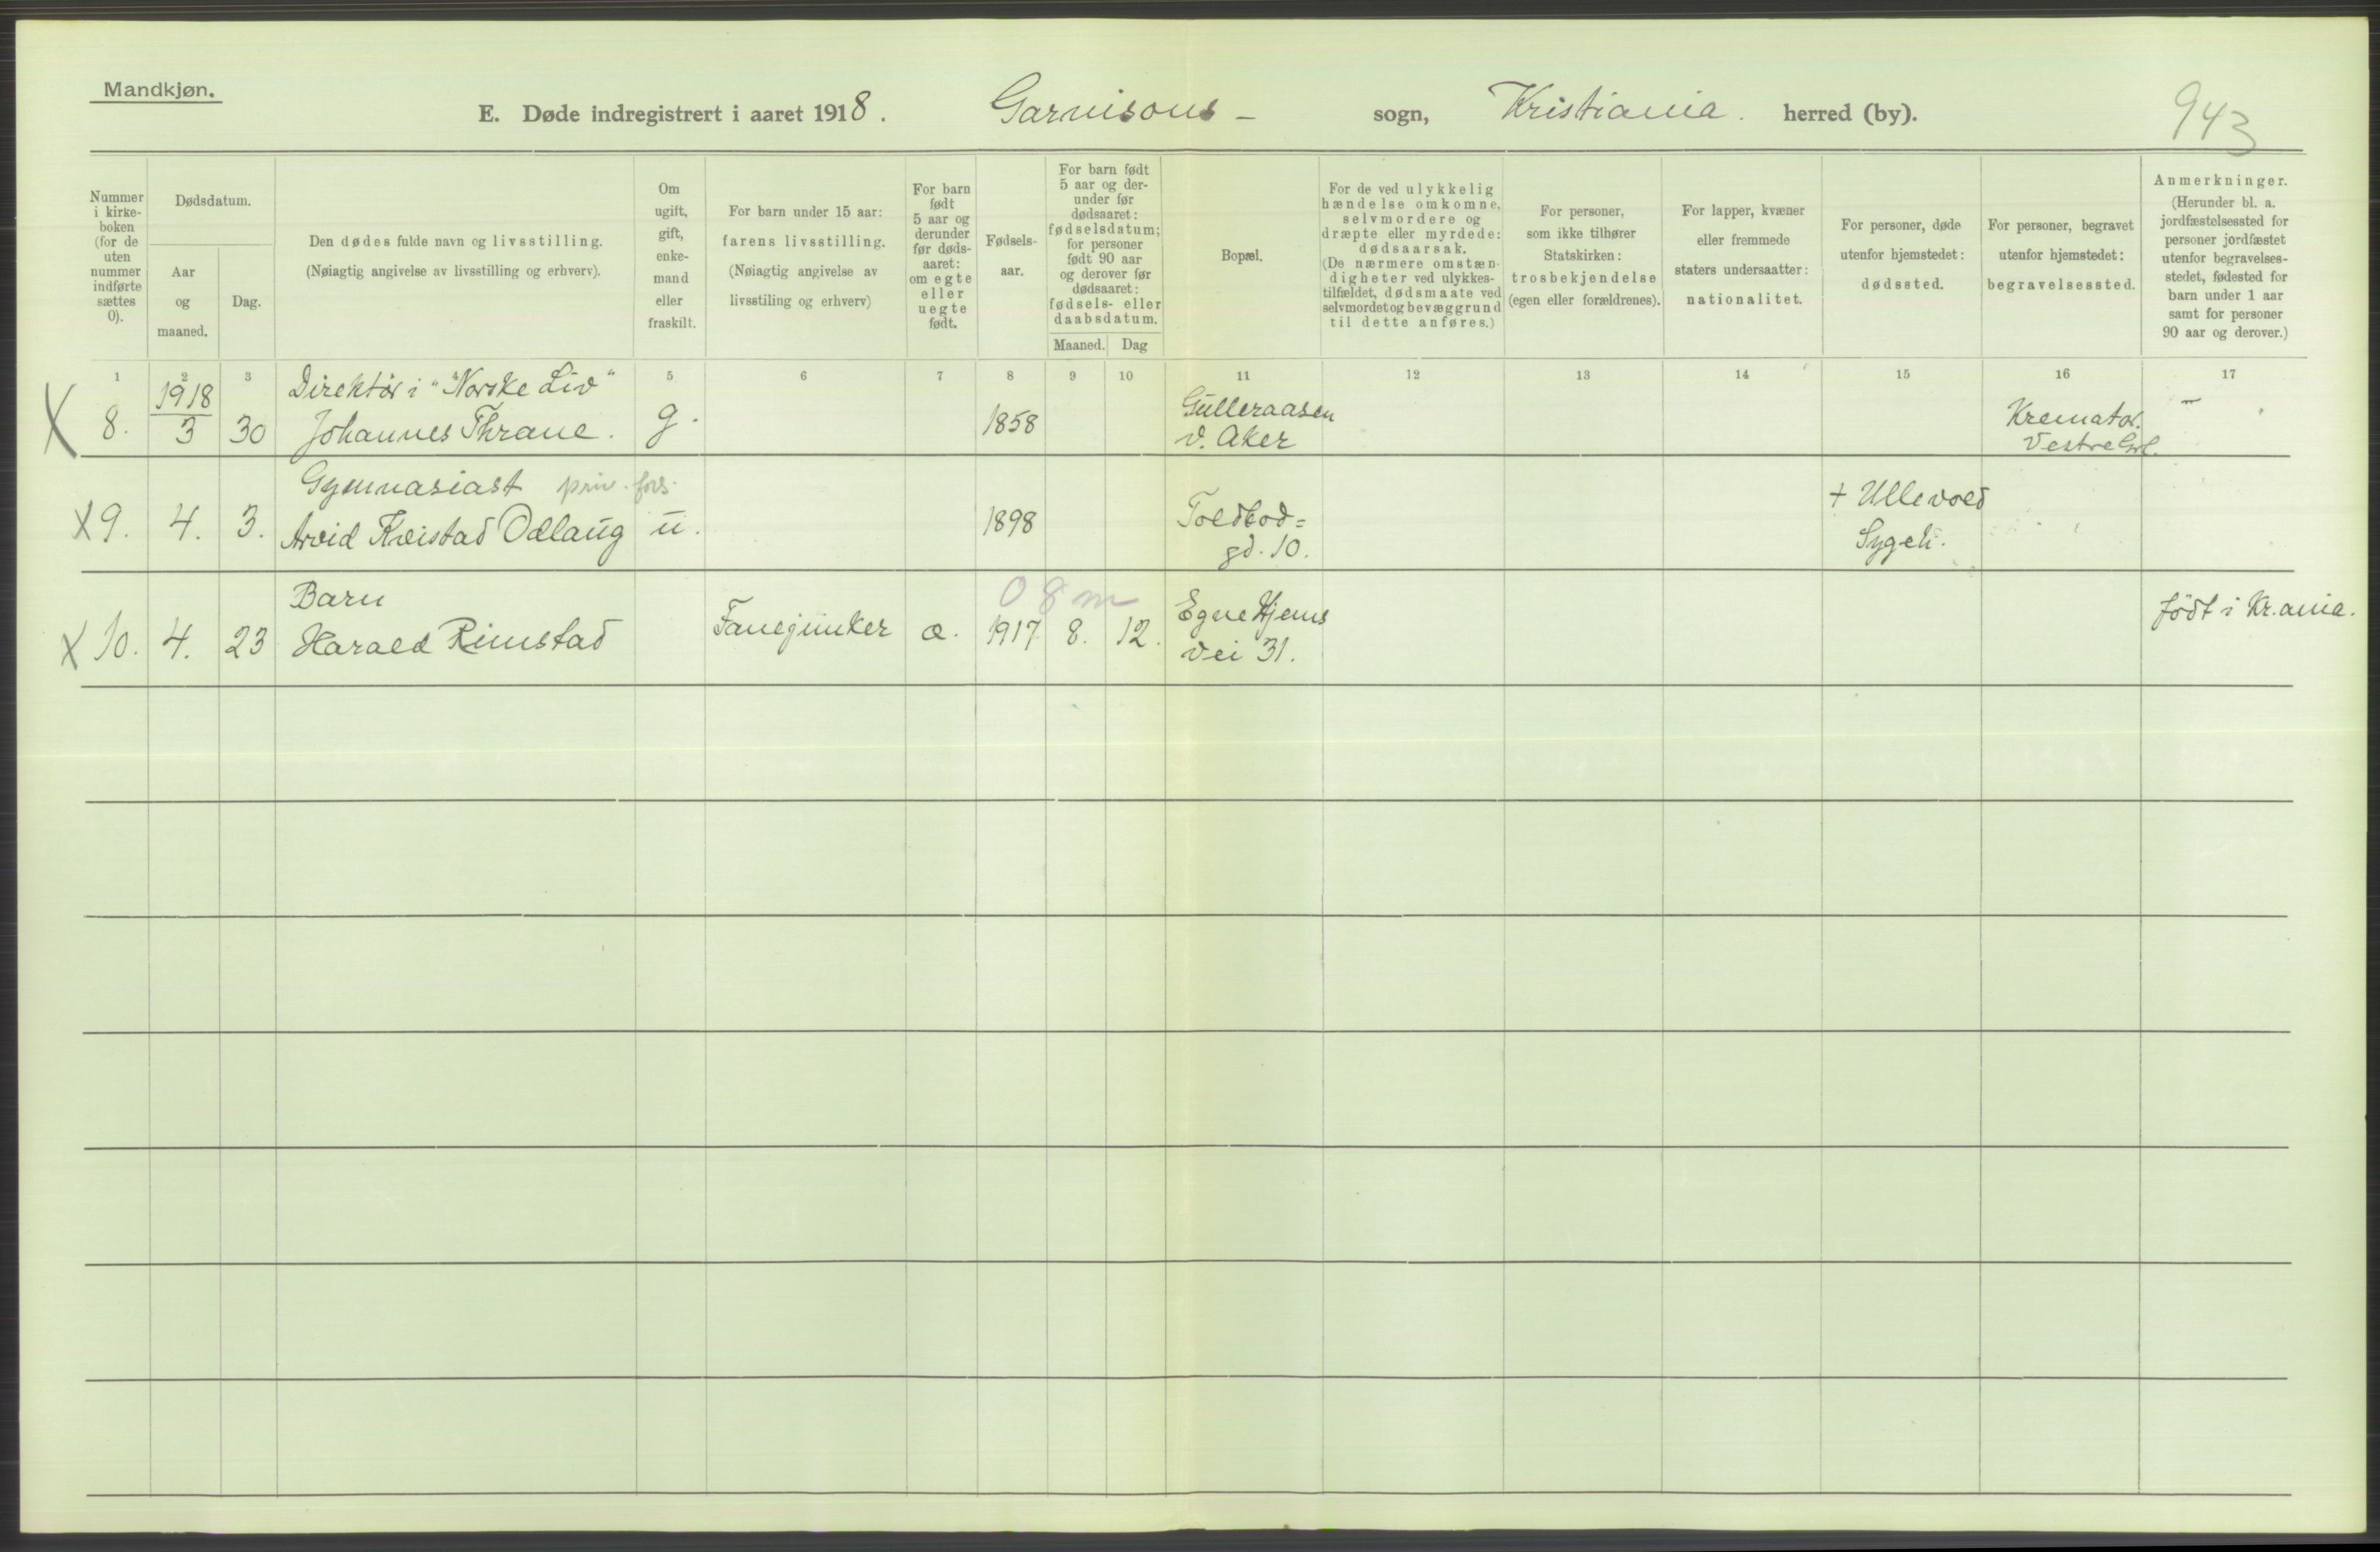 Mandkjøn.
E. Døde indregistrert i aaret 1918. Garnisons - sogn, Kristiania. herred (by).
943
Nummer i kirke-boken (for de uten nummer indførte sættes 0).
Dødsdatum.
Aar og maaned.
Dag.
Den dødes fulde navn og livsstilling.
(Nøiagtig angivelse av livsstilling og erhverv).
Om ugift, gift, enke-mand eller fraskilt.
For barn under 15 aar: farens livsstilling.
(Nøiagtig angivelse av livsstiling og erhverv)
For barn født 5 aar og derunder før døds-aaret: om egte eller uegte født.
Fødsels-aar.
For barn født 5 aar og der-under før dødsaaret: fødselsdatum; for personer født 90 aar og derover før dødsaaret: fødsels- eller daabsdatum.
Maaned. Dag
Bopæl.
For de ved ulykkelig hændelse omkomne, selvmordere og dræpte eller myrdede: dødsaarsak.
(De nærmere omstæn-digheter ved ulykkes-tilfældet, dødsmaate ved selvmordet og bevæggrund til dette anføres.)
For personer, som ikke tilhører Statskirken: trosbekjendelse (egen eller forældrenes).
For lapper, kvæner eller fremmede staters undersaatter: nationalitet.
For personer, døde utenfor hjemstedet: dødssted.
For personer, begravet utenfor hjemstedet: begravelsessted.
Anmerkninger.
(Herunder bl. a. jordfæstelsessted for personer jordfæstet utenfor begravelses-stedet, fødested for barn under 1 aar samt for personer 90 aar og derover.)
1 2 3 4 5 6 7 8 9 10 11 12 13 14 15 16 17
1918 Direktør i "Norske Liv" Gulleraasen Kremator. -
X 8. 3 30 Johannes Thrane. g. 1858 V. Aker Vestre Grl.
Gymnasiast priv. fors. Toldbod= + Ullevold
X 9. 4. 3. Arvid Kvistad Odlaug u. 1898 gd. 10. Sygeh.
Barn 0 8 m Egne Hjems født i Kr.ania.
X 10. 4. 23 Harald Rimstad Fanejunker æ. 1917 8. 12. vei 31.